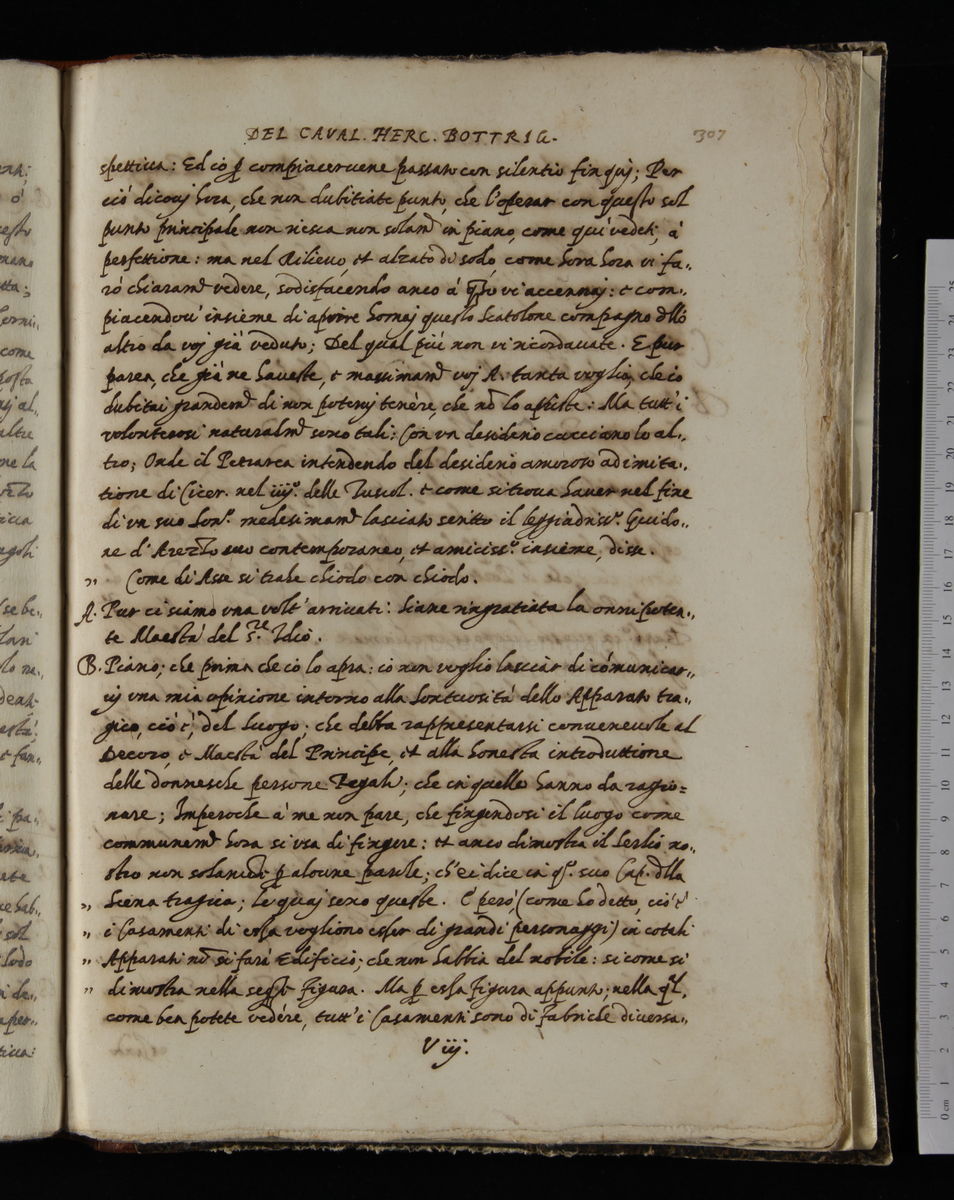 DEL CAVAL. HERC. BOTTRIG.
307
spettiua: Ed io ꝑ compiaceruene passato con silentio fin quj; Per
ciò dicouj hora, che non dubitiate punto, che l'operar con questo sol
punto principale non riesca non solam.te in piano, come quì vedete, à
perfettione: ma nel Rilieuo, et alzato dì sodo, come hora hora vi fa„
rò chiaram.te vedere, sodisfacendo anco á vi accennaj: e com„
piacendoui insieme di aprire homaj questo Scatolone compagno dllo
altro da voj già veduto; Del qual più non vi ricordauate. E pur
parea, che già ne haueste, e massimam.te voj A. tanta voglia, che io
dubitai grandem.te di non poteruj tenére, che nō lo apriste: Ma tutt'i
volonterosi naturalm.te sono tali: Con vn desiderio cacciano lo al„
tro; Onde il Petrarca intendendo del desiderio amoroso ad imita„
tione di Cicer. nel iiij.º delle Tuscul. e come si troua hauer nel fine
di vn suo Son.º medesimam.te lasciato scritto il leggiadriss.º Guido„
ne d'Arezzo suo contemporaneo, et amiciss.º insieme, disse.
„ Come di Asse si trahe chiodo con chiodo.
A. Pur ci siamo vna volt'arriuati: Siane ringratiata la onnipoten„
te Maestà del S.re Idio.
B. Piano; che prima che io lo apra: io non voglio lasciàr di cómunicar„
uj vna mia opinione intorno alla Sontuosità dello Apparato tra„
gico, cio è, del luogo; che debba rappresentarsi conueneuole al
Decoro, e Maestà del Principe, et alla honesta introduttione
delle donnesche persone Regali; che in quello hanno da ragio=
nare; Imperoche à me non pare, che fingendosi il luogo come
communem.te hora si vsa di fingere: et anco dimostra il Serlio no„
stro non solamēte ꝑ alcune parole; ch'ei dice in q.º suo Cap. dlla
„ Scena tragica; le quaj sono queste. E però, (come ho detto, cio è
„ i Casamenti di essa vogliono esser di grandi personaggi) in cotali
„ Apparati nō si farà Edificio; che non habbia del nobile: si come si
„ dimostra nella seg.te figura. Ma ꝑ essa figura appunto; nella q̄l,
come ben potete vedére, tutt'i Casamenti sono di fabriche diuersa„
V iij.